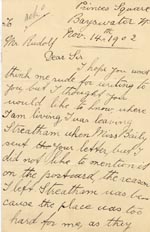 Princes Square
Bayswater W.
Nov. 14th 1902
Mr Rudolf
Dear Sir
I hope you wont
think me rude for writing to
you but I thought you
would like to know where
I am living. I was leaving
Streatham when Miss Baily
sent me your letter but I
did not like to mention it
on the postcard, the reason
I left Streatham was be-
cause the place was too
hard for me, as they